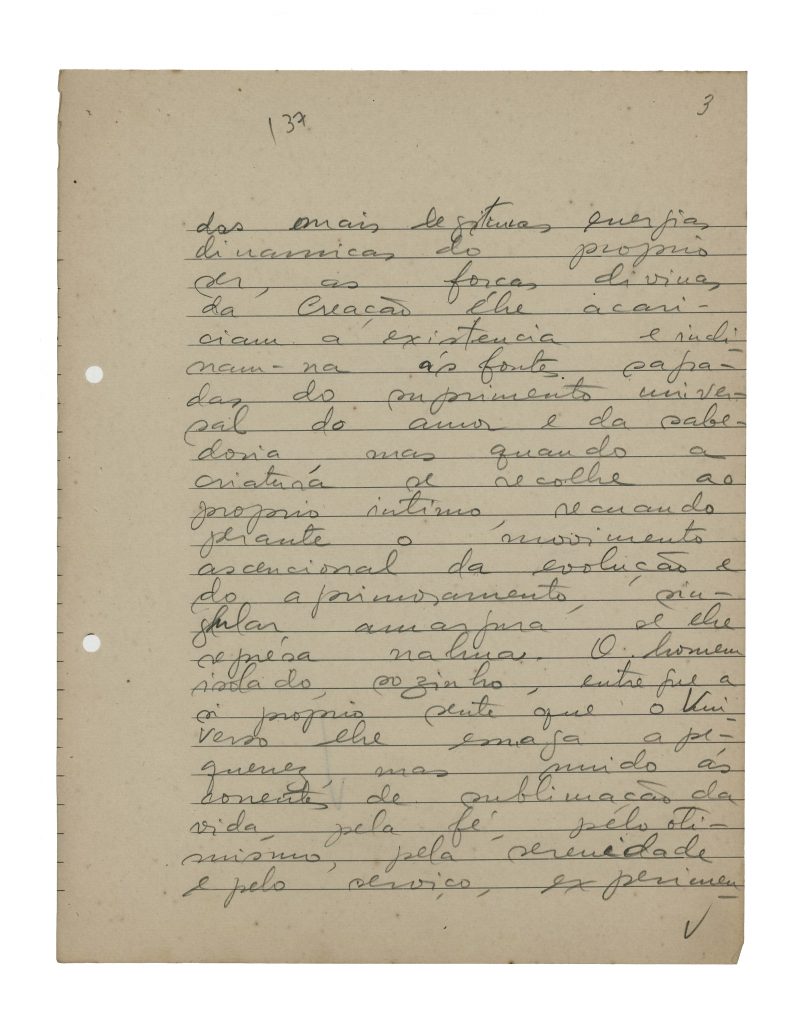 137
3
das mais legitimas energias
dinamicas do proprio
ser, as forças divinas
da Creação lhe acari-
ciam a existencia e incli
nam-na ás fontes sagra-
das do suprimento univer-
sal do amor e da sabe-
doria mas quando a
criatura se recolhe ao
proprio intimo, recuando
perante o movimento
ascencional da evolução e
do aprimoramento, sin-
gular amargura se lhe
represa nalma. O homem
isolado, sozinho, entregue a
si proprio sente que o Uni-
verso lhe esmaga a pe-
quenez, mas unido ás
correntes de sublimação da
vida, pela fé, pelo oti-
mismo, pela serenidade
e pelo serviço, experimen